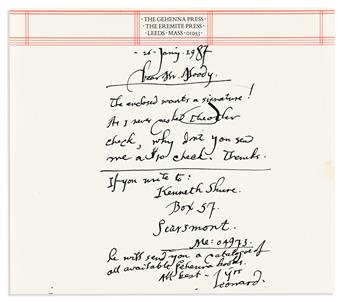 · THE GEHENNA PRESS ·
· THE EREMITE PRESS ·
LEEDS · MASS · 01053 ·
- 26 - Jan'y. 1987
Dear Mr. Moody.
The enclosed wants a signature!
As I never cashed the other
check, why don't you send
me a $10 check. Thanks.
If you write to:
Kenneth Shure.
Box 57.
Searsmont.
Me: 04973.
he will send you a catalogue of
all available Gehenna books.
All best - Yrs
Leonard.